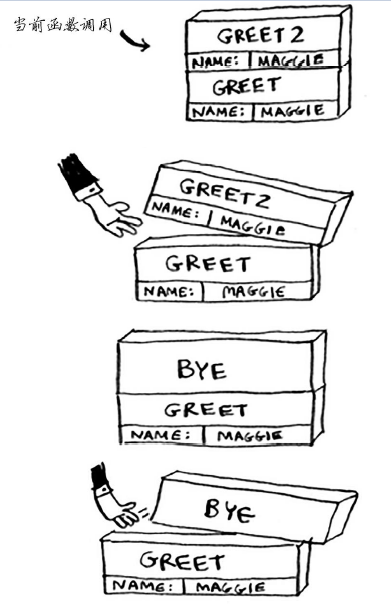 当前函数调用
GREET2
NAME: MAGGIE
GREET
NAME: MAGGIE
GREET2
NAME: MAGGIE
GREET
NAME: MAGGIE
BYE
GREET
NAME: MAGGIE
BYE
GREET
NAME: MAGGIE